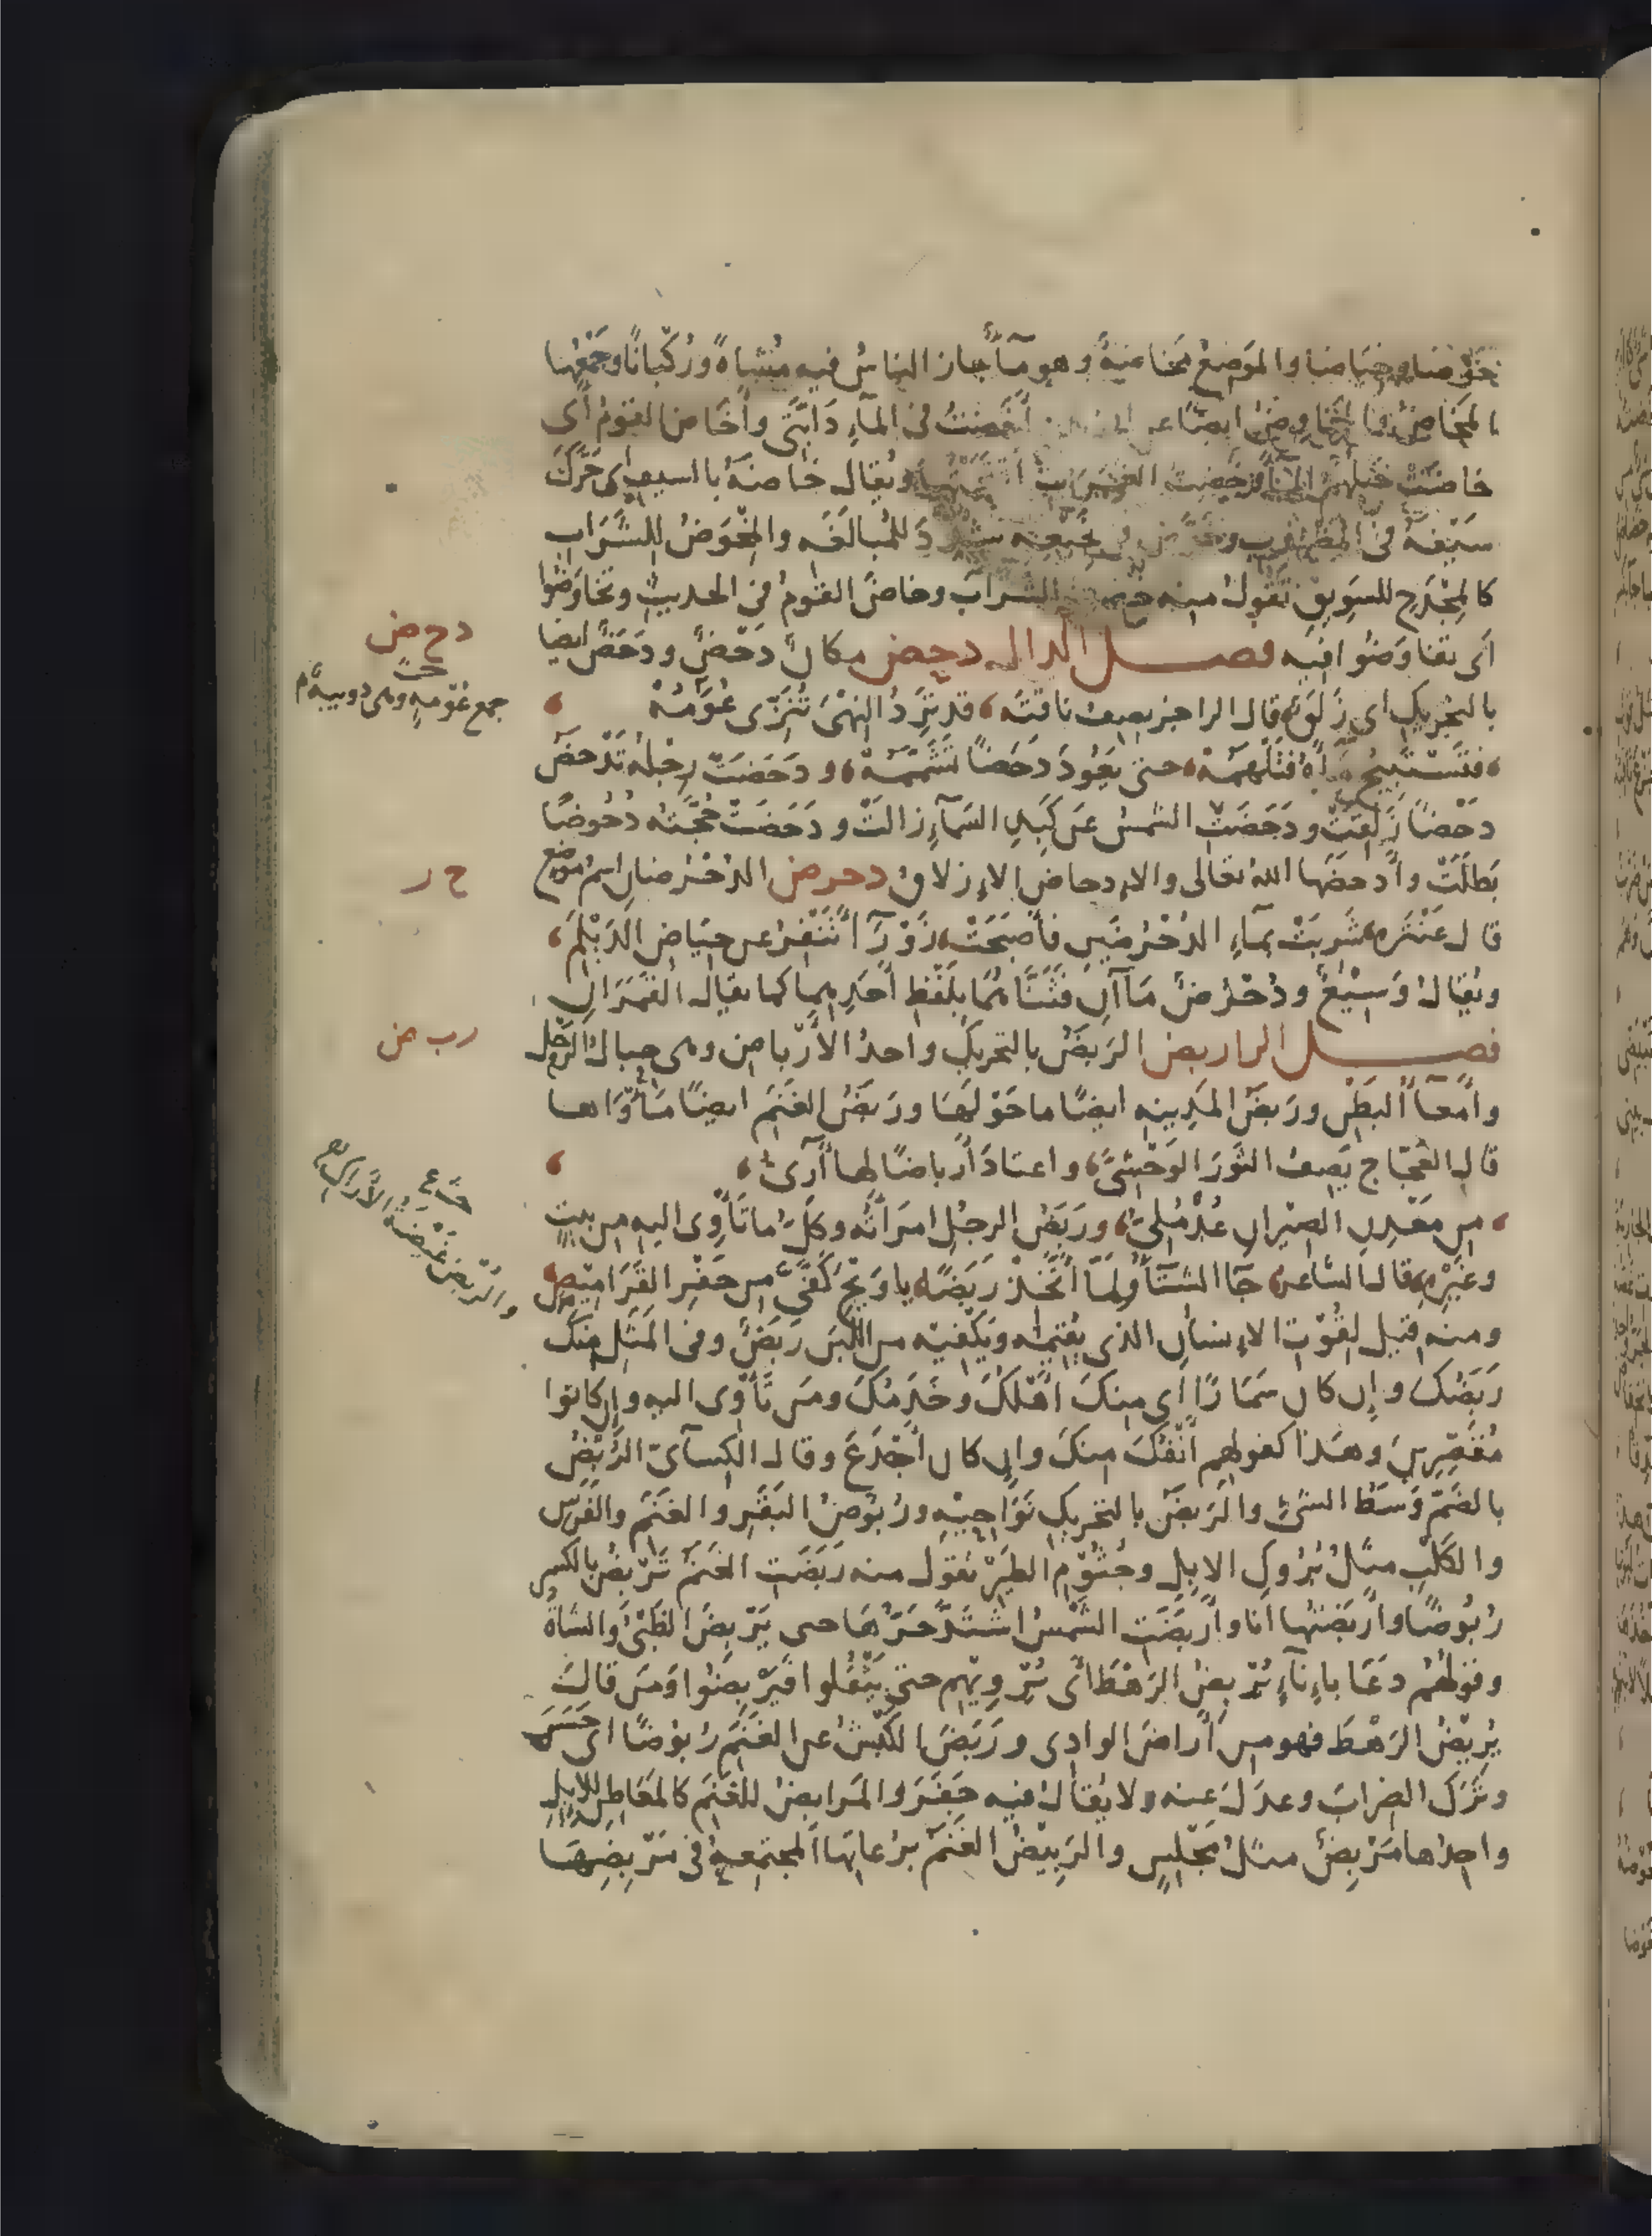 خَوْضًا وخِيَاضًا والمَوضِعُ مَخَاضَةٌ وهو مآ جاز الناسُ فيه مُشاةً ورُكْبَانًا وجَمْعُها
المَخَاضُ والمَخَاوِضُ ايضًا عن ابى زيد أَخَضْتُ فى المآءِ دَابَّتى وأَخَاضَ القومُ أى
خاضَتْ خَيْلُهُم المآ وخُضْتُ الغَمَرَاتِ اقْتَحَمْتُها ويُقال خَاضَهُ بالسيفِ اى حَرَّكَ
سَيْفَهُ فى المَضْرُوبِ وخَوَّضَ فى نَجِيعِه شُدِّدَ للمُبالَغَه والمِخْوَضُ للشَّرَابِ
كالمِجْدَحِ للسَوِيقِ تقولُ منه خُضْتُ الشرابَ وخاضَ القومُ فى الحديثِ وتَخَاوَضُوا
أى تفاوَضُوا فيه فصـــل الدال دحض مكانٌ دَحْضٌ ودَحَضٌ ايضًا
بالتحريكِ اى زَلَقٌ قال الراجز يصِفُ ناقتَه، قد تَرِدُ النِهْىَ تُنَزَّى عُوَّمُهْ
، فتَسْتَبِيحُ مَآءَهُ فتَلْهَمُهْ، حتى يَعُودَ دَحَضًا تَشَمَّمُهْ، ودَحَضَتْ رِجْلُه تَدْحَضُ
دَحْضًا زَلَقَتْ ودَحَضَتِ الشمسُ عن كَبِدِ السَمآءِ زالتْ ودَحَضَتْ حُجَّتُه دُحُوضًا
بَطَلَتْ وأَدحَضَها اللهُ تعَالى والإدحاضُ الإزلاقُ دحرض الدُحْرُضانِ اسمُ موضع
قال عَنْتَره، شَرِبَتْ بمآءِ الدُحْرُضَيْنِ فأَصبَحَتْ، زَوْرَآءَ تَنْفِرُ عن حِيَاضِ الدَيْلَمِ،
ويُقالُ وَسِيْعٌ ودُحْرُضٌ مَآآنِ فثَنَّاهُمَا بلَفْظِ أحَدِهِما كما يقال القَمَرَانِ
فصـــل الرا ربض الرَبَضُ بالتحريكِ واحدُ الأَرْباضِ وهى حبالُ الرَّحْل
وأَمعآءُ البَطْنِ ورَبَضُ المَدِينه ايضًا ما حَوْلَهَا ورَبَضُ الغَنَمِ ايضًا مَأْوَاها
قال العَجَّاج يَصِفُ الثَوْرَ الوَحْشِىَّ، واعتادَ أَرباضًا لها آرِىُّ،
، من مَعْدِنِ الصِيْرانِ عُدْمُلِىُّ، ورَبَضُ الرجُلِ امرَأتُه وكلُّ ما تَأْوِى اليه من بيتٍ
وغَيْرِه، قال الشاعر، جآ الشتَآءُ ولَمَّا أَتَّخِذْ رَبَضًا، يا وَيْحَ كَفَّىَّ من حَفْرِ القَرَامِيْصِ
ومنه قيل لقُوْتِ الإنسانِ الذى يُقِيمُه ويَكْفيه من اللَبَنِ رَبَضٌ وفى المَثَلِ مِنكَ
رَبَضُكَ وإن كان سَمَارًا أى مِنكَ اهْلُكَ وخَدَمُكَ ومَن تَأْوِى اليه وإن كانوا
مُقَصِّرِينَ وهَذا كقولهم أَنْفُكَ مِنكَ وإن كان أَجْدَعَ وقال الكِسآئىّ الرُبْضُ
بالضَمّ وَسَطُ الشئِ والرَبَضُ بالتحريكِ نَوَاحِيْه ورُبُوضُ البَقَرِ والغَنَمِ والفَرَسِ
والكَلْبِ مثلُ بُرُوكِ الابلِ وجُثُوْمِ الطيرِ تقول منه رَبَضَتِ الغنمُ تَرْبِضُ بالكسر
رُبُوضًا وأَرْبَضْتُها أنا وأَرْبَضَتِ الشمسُ اشتَدَّ حَرُّهَا حتى يَرْبِضَ الظَبْىُ والشاةُ
وقولُهُم دَعَا بإِنآءٍ يُرْبِضُ الرَهْطَ أى يُرْوِيْهِم حتى يَثْقُلُوا فيَرْبِضُوا ومَن قال
يُرِيْضُ الرَهْطَ فهو من أَراضَ الوادِى ورَبَضَ الكَبْشُ عن الغَنَمِ رُبُوضًا اى حَسَرَ
وتَرَكَ الضِرابَ وعدَلَ عنه ولا يُقالُ فيه جَفَرَ والمَرَابِضُ للغَنَمِ كالمَعَاطِنِ للابِلِ
واحِدُها مَرْبِضٌ مثالُ مَجْلِسٍ والرَبِيْضُ الغَنَمُ برُعاتِها المجتمعةُ فى مَرْبِضِهَا
دحض
جمع عُوّمه وهى دويبةٌ م
ح ر
ربض
والرُّبُضُ غَيْضَةُ الأراكِ